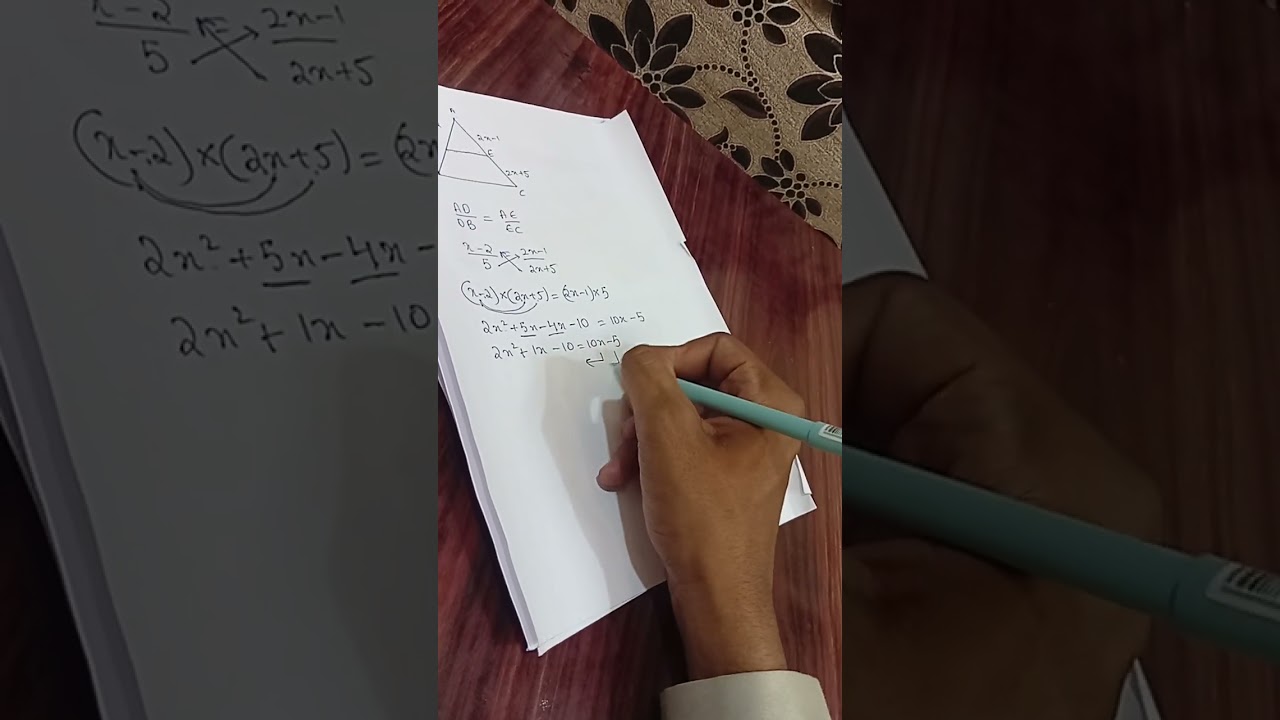 A
2x-1
E
2x+5
C
AD/DB = AE/EC
x-2/5 = 2x-1/2x+5
(x-2)×(2x+5)=(2x-1)×5
2x²+5x-4x-10 = 10x-5
2x²+1x-10=10x-5